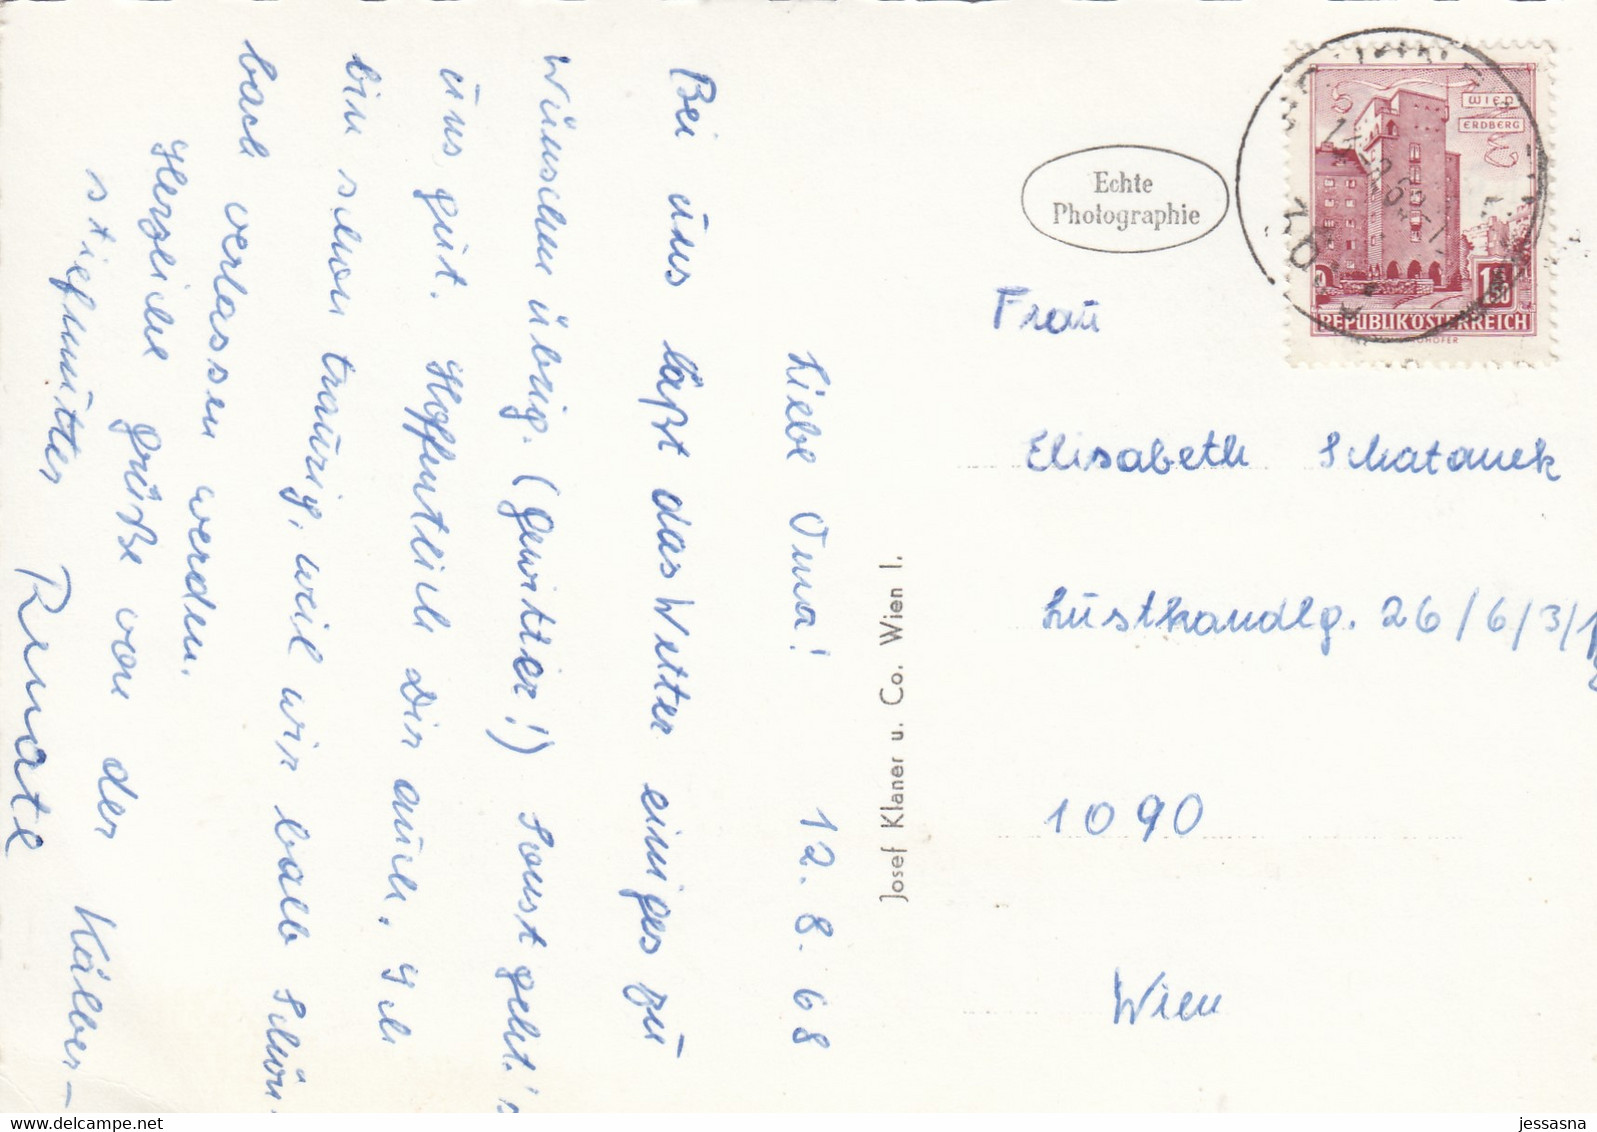 Liebe Oma! 12.8.68
Bei uns läßt das Wetter einiges zu
wünschen übrig. (Gewitter!) Sonst geht's
uns gut. Hoffentlich Dir auch. Ich
bin schon traurig, weil wir bald Schön-
bach verlassen werden.
Herzliche Grüße von der Kälber-
stiefmutter Renate
Josef Klaner u. Co. Wien I.
Echte
Photographie
WIEN
ERDBERG
1.50
REPUBLIK ÖSTERREICH
Frau
Elisabeth Schatanek
Lustkandlg. 26/6/3/
1090
Wien
jessasna